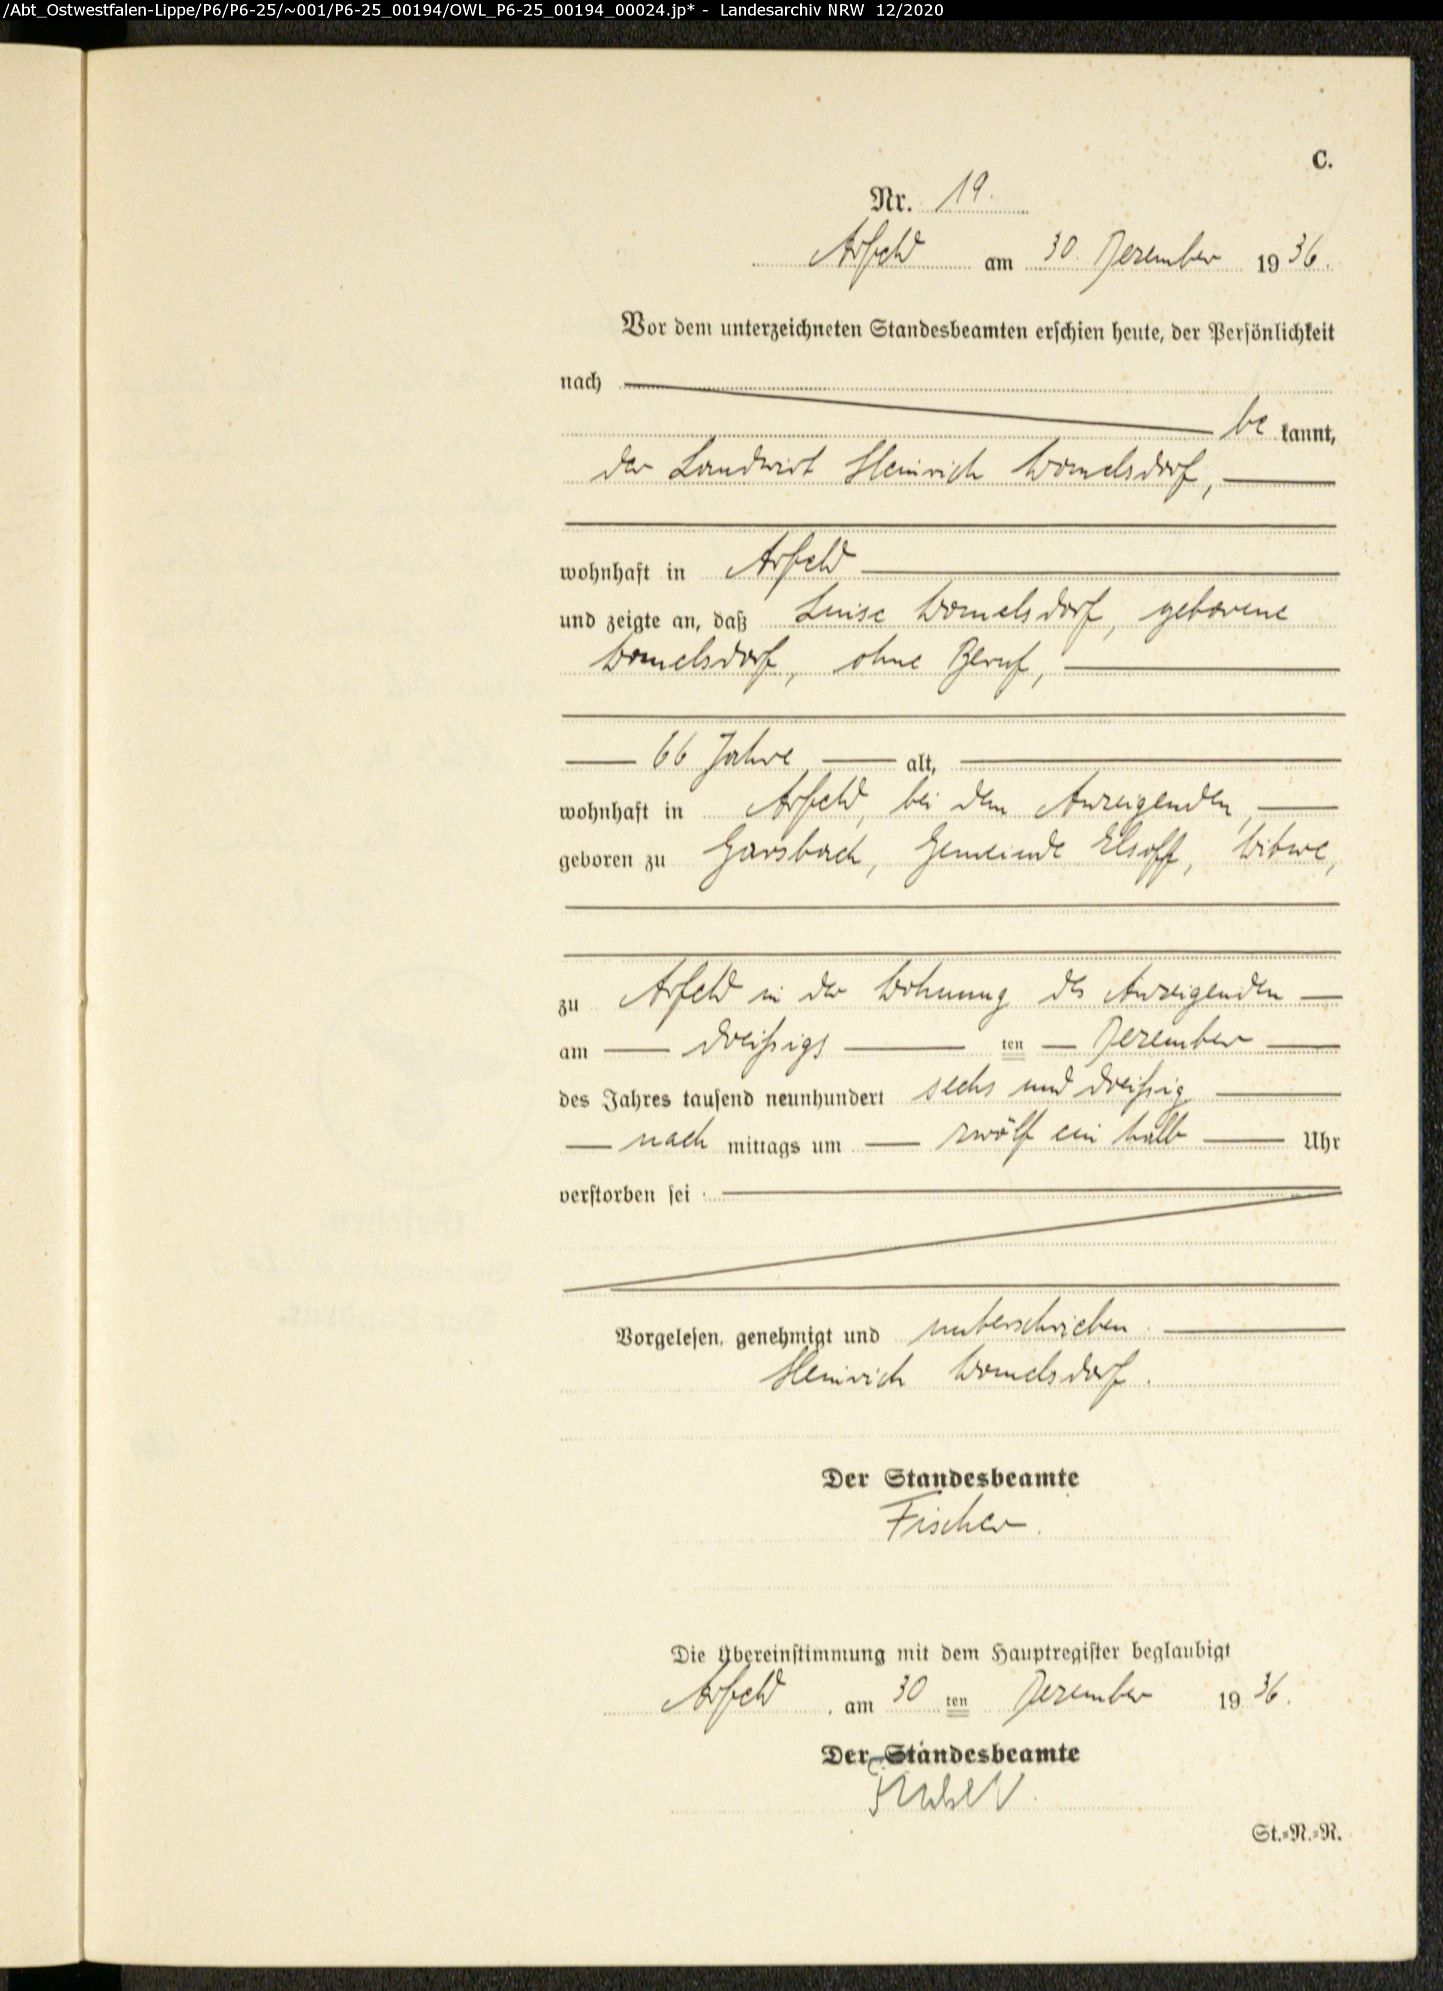 /Abt_Ostwestfalen-Lippe/P6/P6-25/~001/P6-25_00194/OWL_P6-25_00194_00024.jp* - Landesarchiv NRW 12/2020
C.
Nr. 19.
Arfeld am 30. Dezember 1936.
Vor dem unterzeichneten Standesbeamten erschien heute, der Persönlichkeit
nach
be kannt,
der Landwirt Heinrich Womelsdorf,
wohnhaft in Arfeld
und zeigte an, daß Luise Womelsdorf, geborene
Womelsdorf, ohne Beruf,
66 Jahre alt,
wohnhaft in Arfeld, bei dem Anzeigenden,
geboren zu Garsbach, Gemeinde Elsoff, Witwe,
zu Arfeld in der Wohnung des Anzeigenden
am dreißigs ten Dezember
des Jahres tausend neunhundert sechs und dreißig
nach mittags um zwölf ein halb Uhr
verstorben sei
Vorgelesen, genehmigt und unterschrieben
Heinrich Womelsdorf.
Der Standesbeamte
Fischer.
Die Übereinstimmung mit dem Hauptregister beglaubigt
Arfeld, am 30 ten Dezember 1936.
Der Standesbeamte
St.=R.=N.